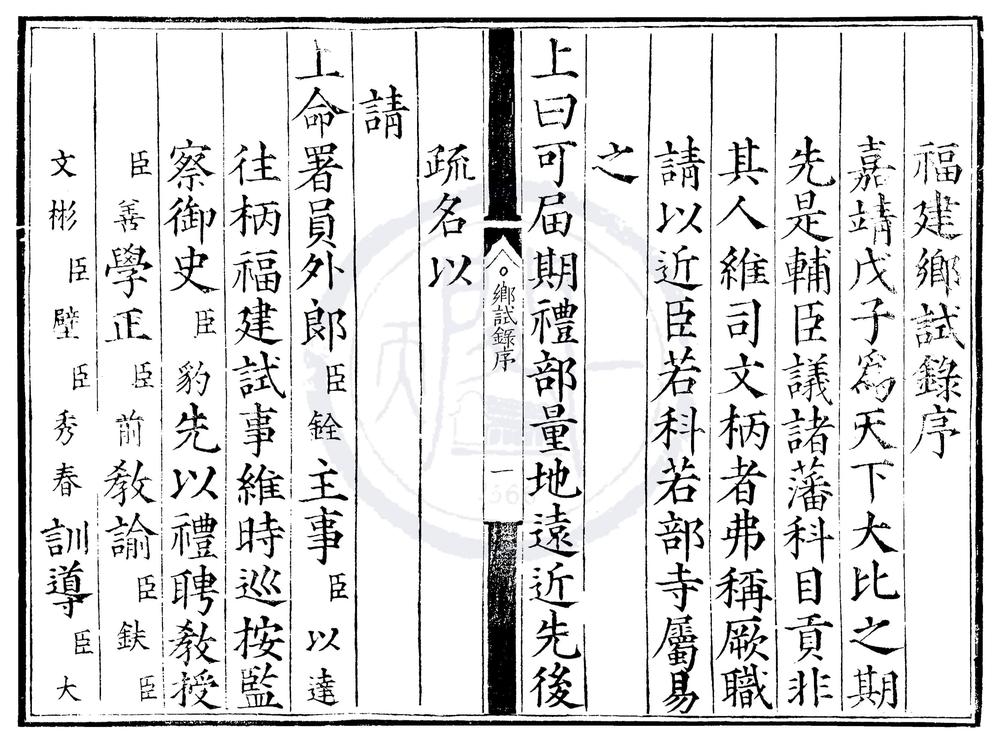 福建鄉試錄序
嘉靖戊子爲天下大比之期
先是輔臣議諸藩科目貢非
其人維司文柄者弗稱厥職
請以近臣若科若部寺屬易
之
上曰可届期禮部量地遠近先後
鄉試錄序 一
疏名以
請
上命署員外郎臣銓主事臣以達
往柄福建試事維時巡按監
察御史臣豹先以禮聘教授
臣善學正臣前教諭臣鈇臣
文彬臣壁臣秀春訓導臣大